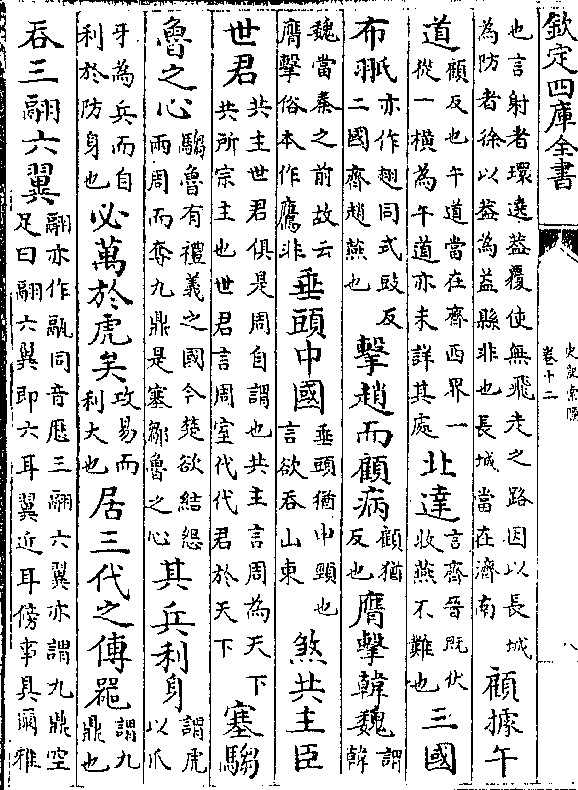 欽定四庫全書
史記索隱
卷十二
八
也言射者環遶葢覆使無飛走之路因以長城
為防者徐以葢為益縣非也長城當在濟南
顧據午
道
顧反也午道當在齊西界一
從一橫為午道亦未詳其處
北達
言齊晉既伏
收燕不難也
三國
布𦐂
𦐂亦作翅同式䜴反
二國齊趙燕也
擊趙而顧病
顧猶
反也
膺擊韓魏
謂韓
魏當秦之前故云
膺擊俗本作鷹非
垂頭中國
垂頭猶申頸也
言欲吞山東
煞共主臣
世君
共主世君俱是周自謂也共主言周為天下
共所宗主也世君言周室代代君於天下
塞騶
魯之心
騶魯有禮義之國今楚欲結怨
兩周而奪九鼎是塞鄒魯之心
其兵利身
謂虎
以爪
牙為兵而自
利於防身也
必萬於虎矣
攻易而
利大也
居三代之傳器
謂九
鼎也
吞三翮六翼
翮亦作䰛同音歴三翮六翼亦謂九鼎空
足曰翮六翼即六耳翼近耳傍事具爾雅